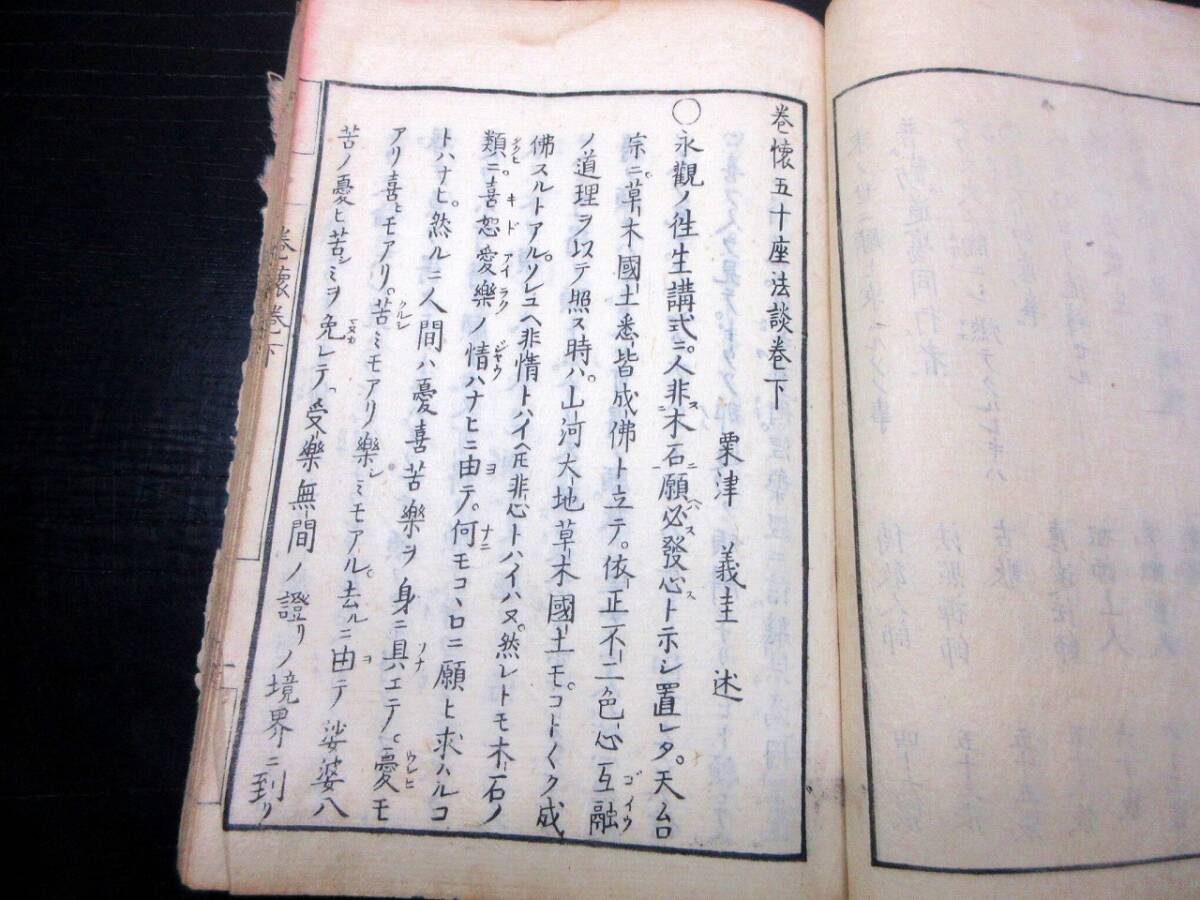 巻懐五十座法談巻下
粟津義圭述
〇永觀ノ徃生講式ニ。人非木石願必發心ト示シ置レタ。天台
宗ニ。草木國土悉皆成佛ト立テ。依正不二色心互融
ノ道理ヲ以テ照ス時ハ。山河大地草木國土モ。コトくク成
佛スルトアル。ソレユヘ非情トハイヘ𪜈非心トハイハヌ。然レトモ木石ノ
類ニ。喜怒愛樂ノ情ハナヒニ由テ。何モコヽロニ願ヒ求ハルコ
トハナヒ。然ルニ人間ハ憂喜苦樂ヲ身ニ具ハエテ。憂モ
アリ喜ヒモアリ。苦ミモアリ樂シミモアル。去ルニ由テ娑婆八
苦ノ憂ヒ苦シミヲ免レテ受樂無間ノ證リノ境界ニ到リ
巻懐巻下